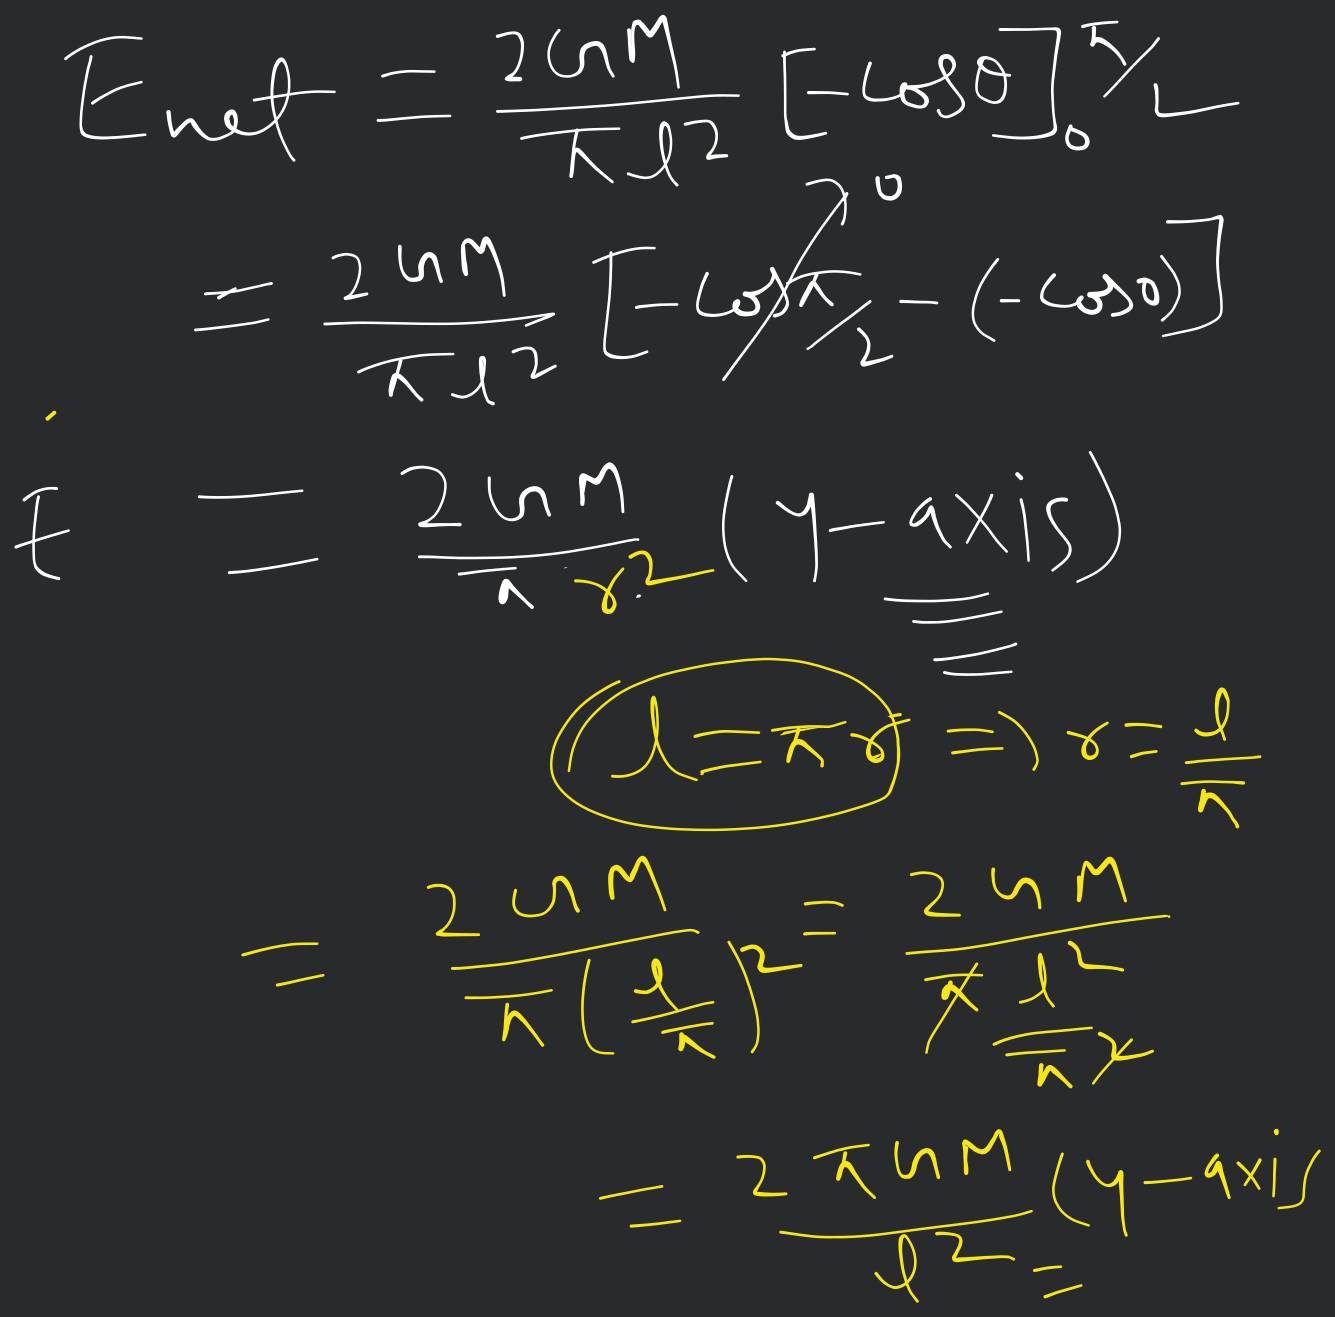 Enet = 2GM/πl² [-cosθ]₀^π/2
= 2GM/πl² [-cosπ/2 - (-cos0)] 0
E = 2GM/πr² (y-axis)
l = πr => r = l/π
= 2GM/π(l/π)² = 2GM/π l²/π²
= 2πGM/l² (y-axis
=